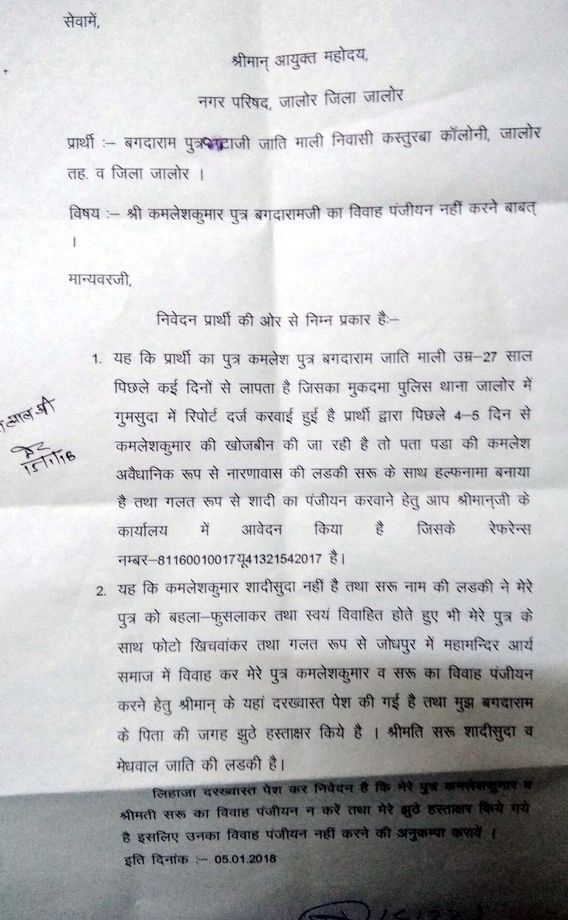 सेवामें,
श्रीमान् आयुक्त महोदय,
नगर परिषद, जालोर जिला जालोर
प्रार्थी :– बगदाराम पुत्र जाति माली निवासी कस्तुरबा कॉलोनी, जालोर
तह. व जिला जालोर ।
विषय :– श्री कमलेशकुमार पुत्र बगदारामजी का विवाह पंजीयन नहीं करने बाबत्
।
मान्यवरजी,
निवेदन प्रार्थी की ओर से निम्न प्रकार है:–
1. यह कि प्रार्थी का पुत्र कमलेश पुत्र बगदाराम जाति माली उम्र–27 साल
पिछले कई दिनों से लापता है जिसका मुकदमा पुलिस थाना जालोर में
गुमसुदा में रिपोर्ट दर्ज करवाई हुई है प्रार्थी द्वारा पिछले 4–5 दिन से
कमलेशकुमार की खोजबीन की जा रही है तो पता पडा की कमलेश
अवैधानिक रूप से नारणावास की लडकी सरू के साथ हल्फनामा बनाया
है तथा गलत रूप से शादी का पंजीयन करवाने हेतु आप श्रीमान्जी के
कार्यालय में आवेदन किया है जिसके रेफरेन्स
नम्बर–81160010017यू41321542017 है।
2. यह कि कमलेशकुमार शादीसुदा नहीं है तथा सरू नाम की लडकी ने मेरे
पुत्र को बहला–फुसलाकर तथा स्वयं विवाहित होते हुए भी मेरे पुत्र के
साथ फोटो खिचवांकर तथा गलत रूप से जोधपुर में महामन्दिर आर्य
समाज में विवाह कर मेरे पुत्र कमलेशकुमार व सरू का विवाह पंजीयन
करने हेतु श्रीमान् के यहां दरख्वास्त पेश की गई है तथा मुझ बगदाराम
के पिता की जगह झुठे हस्ताक्षर किये है । श्रीमति सरू शादीसुदा व
मेधवाल जाति की लडकी है।
लिहाजा दरख्वास्त पेश कर निवेदन है कि मेरे पुत्र कमलेशकुमार व
श्रीमती सरू का विवाह पंजीयन न करें तथा मेरे झुठे हस्ताक्षर किये गये
है इसलिए उनका विवाह पंजीयन नहीं करने की अनुकम्पा करावें ।
इति दिनांक :– 05.01.2018